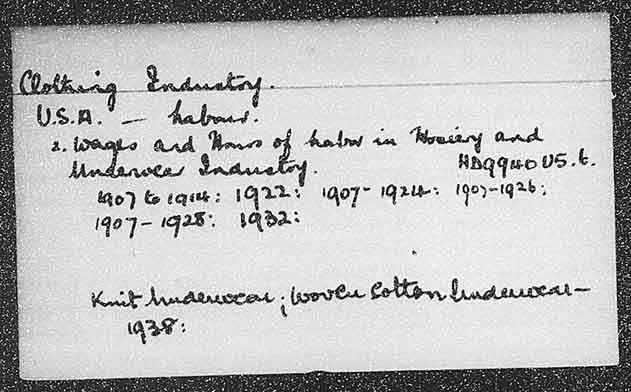 Clothing Industry.
U.S.A. — Labour.
2. Wages and Hours of Labor in Hosiery and
Underwear Industry. HD9940 US. 6.
1907 to 1914: 1922: 1907-1924: 1907-1926:
1907-1928: 1932:
Knit Underwear; Woven Cotton Underwear —
1938: